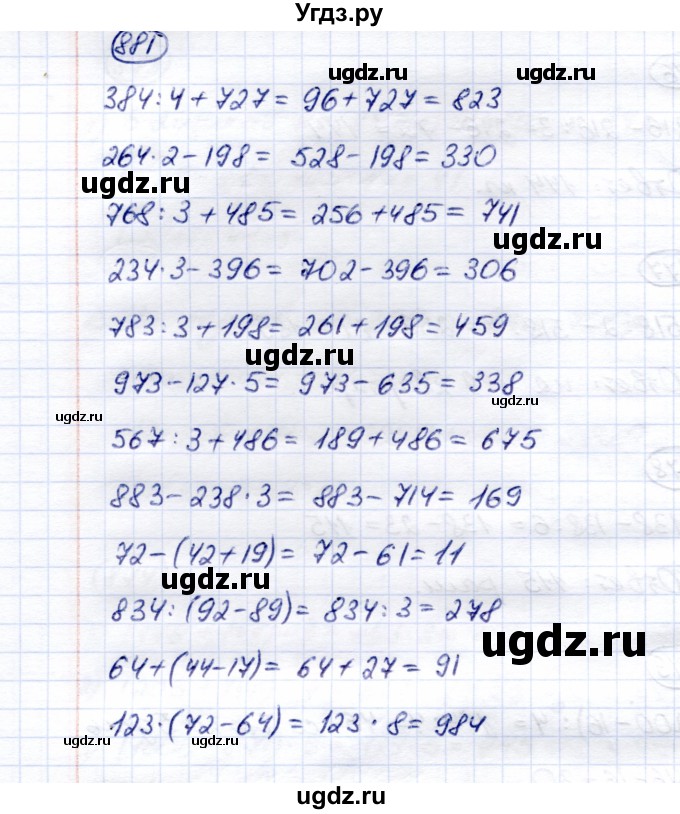 Угдз.ру
881
ugdz.ru
384:4+727=96+727=823
264·2-198=528-198=330
ugdz.ru
768:3+485=256+485=741
ugdz.ru
234·3-396=702-396=306
783:3+198=261+198=459
ugdz.ru
973-127·5=973-635=338
ugdz.ru
ugdz.ru
567:3+486=189+486=675
883-238·3=883-714=169
72-(42+19)=72-61=11
ugdz.ru
834:(92-89)=834:3=278
ugdz.ru
64+(44-17)=64+27=91
123·(72-64)=123·8=984
ugdz.ru
ugdz.ru
ugdz.ru